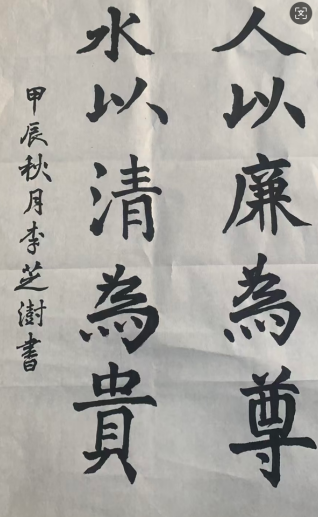 人以廉為尊
水以清為貴
甲辰秋月李芝澍書